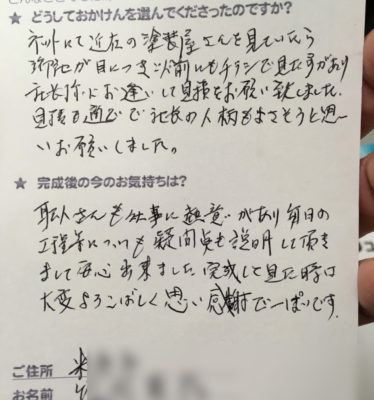 ★ どうしておかけんを選んでくださったのですか?
ネットにて近在の塗装屋さんを見ていたら
が目につき以前にもチラシで見た事があり
社長様にお逢いして見積をお願い致しました。
見積も適正で社長の人柄もよさそうと思
いお願いしました。
★ 完成後の今のお気持ちは?
職人さんも仕事に熱意があり毎日の
工程等についても疑問点も説明して頂き
まして安心出来ました。完成して見た時は
大変よろこばしく思い感謝で一ぱいです。
ご住所 米
お名前